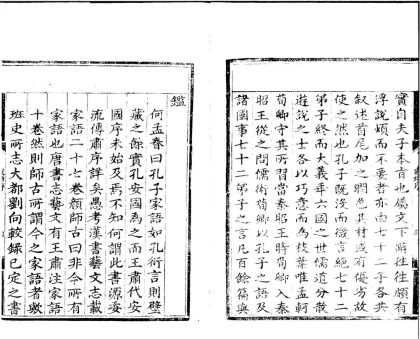 實自夫子本旨也屬文下辭往往頗有
浮說煩而不要者亦由七十二子各共
叙述首尾加之潤色其材或有優劣故
使之然也孔子既沒而微言絶七十二
弟子終而大義乖六國之世儒道分散
遊說之士各以巧意而為枝葉唯孟軻
荀卿守其所習當秦昭王時荀卿入秦
昭王從之問儒術荀卿以孔子之語及
諸國事七十二弟子之言凡百餘篇與
鑑
何孟春曰孔子家語如孔衍言則壁
藏之餘實孔安國為之而王肅代安
國序未始及焉不知何謂此書源委
流傳肅序詳矣愚考漢書藝文志載
家語二十七卷顔師古曰非今所有
家語也唐書志藝文有王肅注家語
十卷然則師古所謂今之家語者歟
班史所志大都劉向較録已定之書